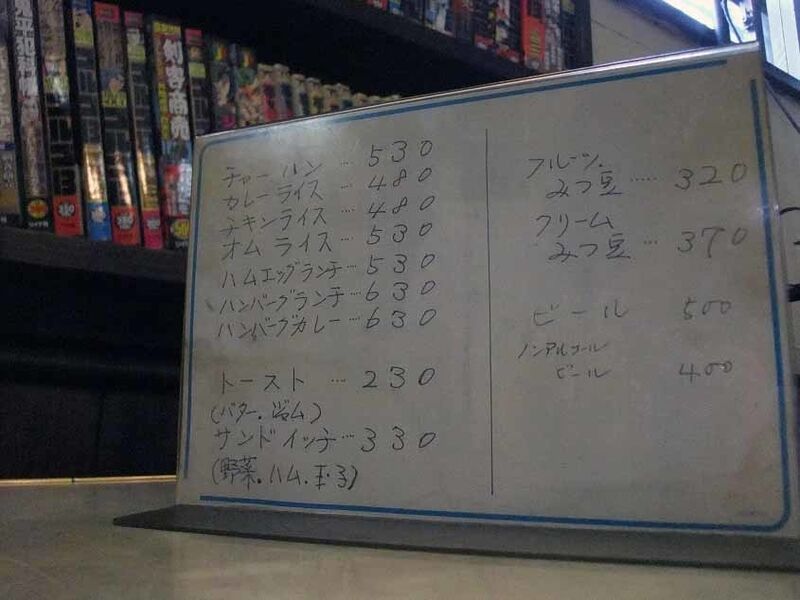 チャーハン … 530
カレーライス … 480
チキンライス … 480
オムライス … 530
ハムエッグランチ … 530
ハンバーグランチ … 630
ハンバーグカレー … 630
トースト … 230
(バター.ジャム.)
サンドイッチ … 330
(野菜.ハム.玉子)
フルーツ
みつ豆 …… 320
クリーム
みつ豆 … 370
ビール 500
ノンアルコール
ビール 400